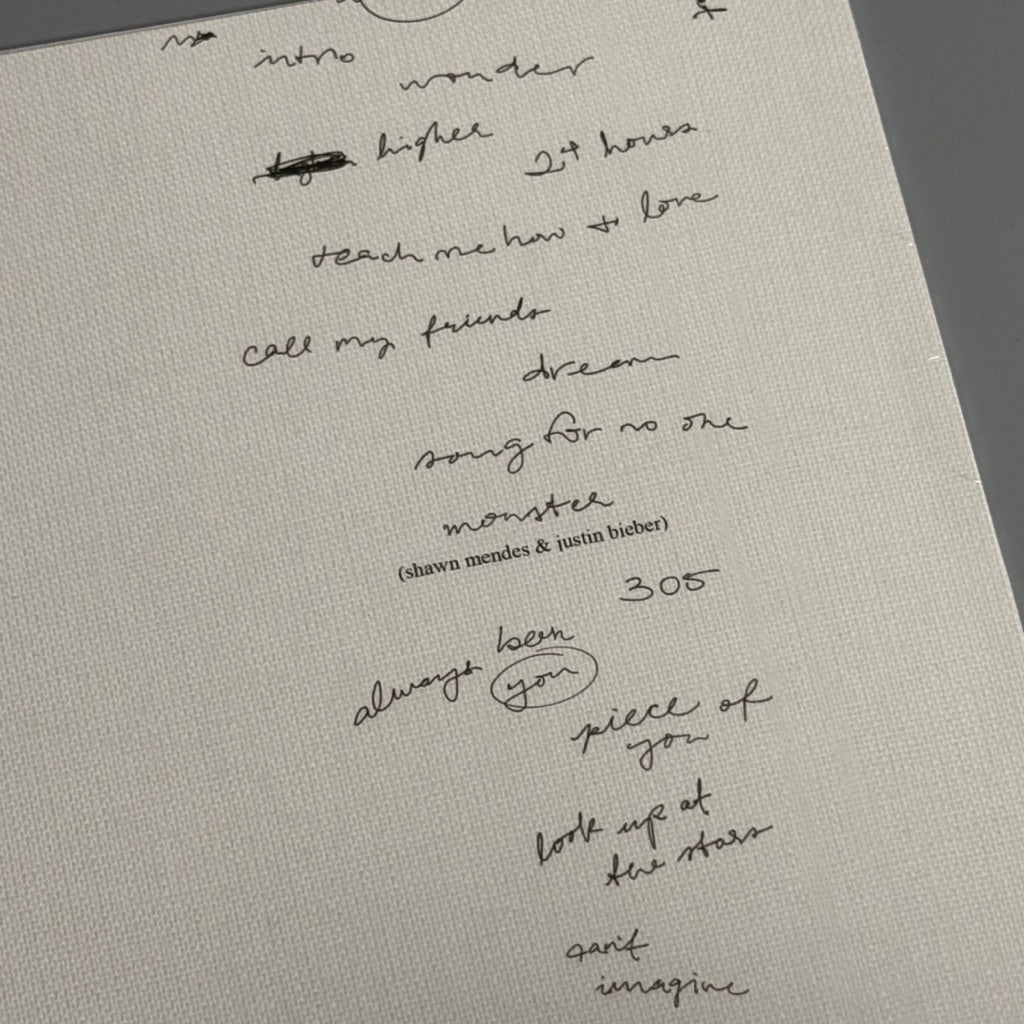 intro
wonder
higher
24 hours
teach me how to love
call my friends
dream
song for no one
monster
(shawn mendes & justin bieber)
305
always been
you
piece of
you
look up at
the stars
can't
imagine